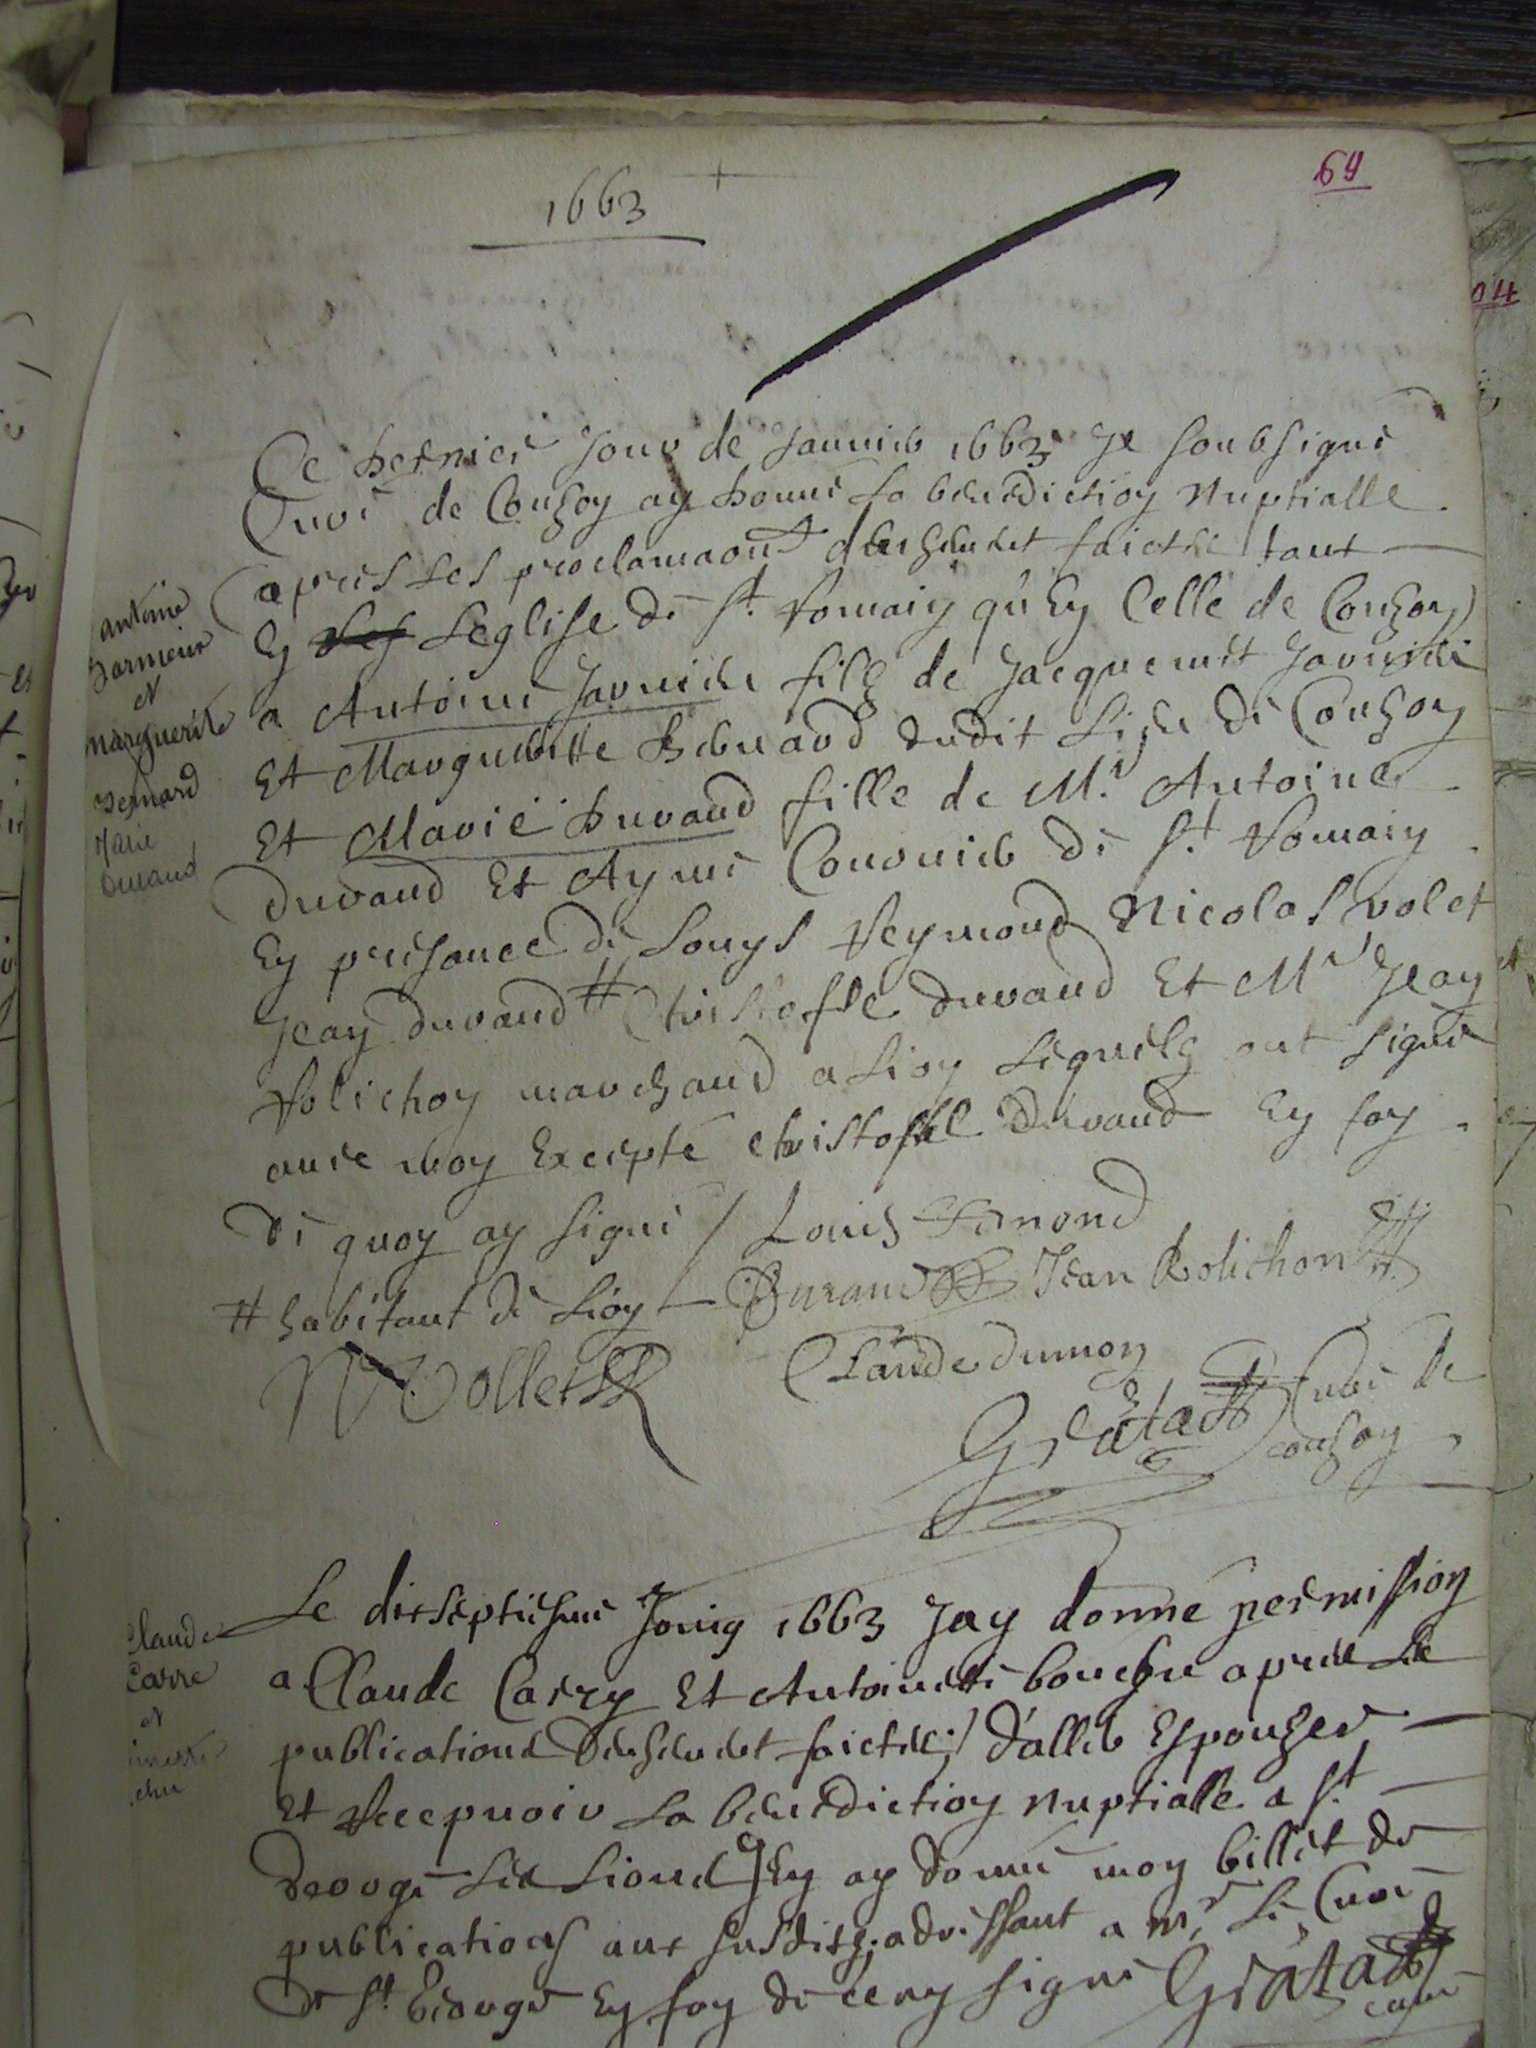 1663
69
04
Ce dernier Jour de Januier 1663 Je soubsigné
Curé de Couzon ay donné la benediction Nuptialle
apres les proclamaons deuhement faictes tant
En leglise de st Romain qu'En Celle de Couzon
a Antoine Jarnieu filz de Jacquemet
Et Margueritte Bernard dudit lieu de Couzon
Et Marie Durand fille de Mr Antoine
Durand Et Aymé Couronier de st Romain
En presance de Louys Reymond Nicolas volet
Jean durand # Christofle durand Et Mr Jean
Rolichon marchand a Lion lequelz ont signé
auec moy Excepté christofle Durand En foy
de quoy ay signé / Louis Remond
# habitant de Lion Durand Jean Rolichon
N Vollet Claude dumon
Gratad Curé de
couzon
antoine
Jarnieu
et
marguerite
bernard
Marie
Durand
Le dixseptiesme Jouing 1663 Jay donné permission
a Claude Carry Et Antoinette bouchu apres les
publications deuhement faictes d'aller Espouzer
Et Recepuoir la benediction nuptialle a st
George les Lion En ay donné mon billet de
publications aux susditz adressant a mr le Curé
de st George En foy de ceny signé Gratad
curé
claude
Carre
et